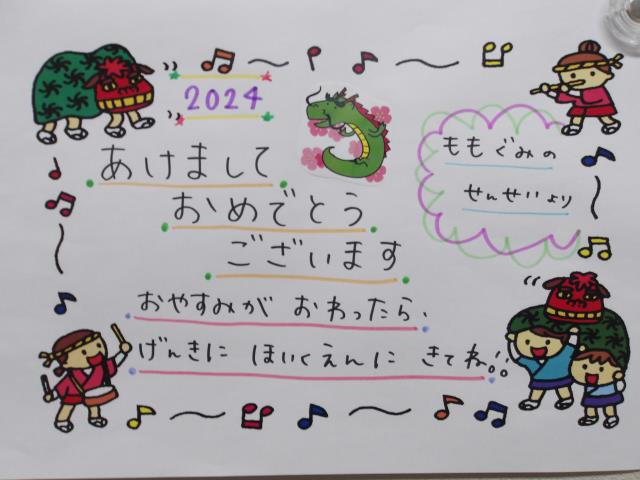 2024
あけまして
おめでとう
ございます
ももぐみの
せんせいより
おやすみが おわったら、
げんきに ほいくえんに きてね!!